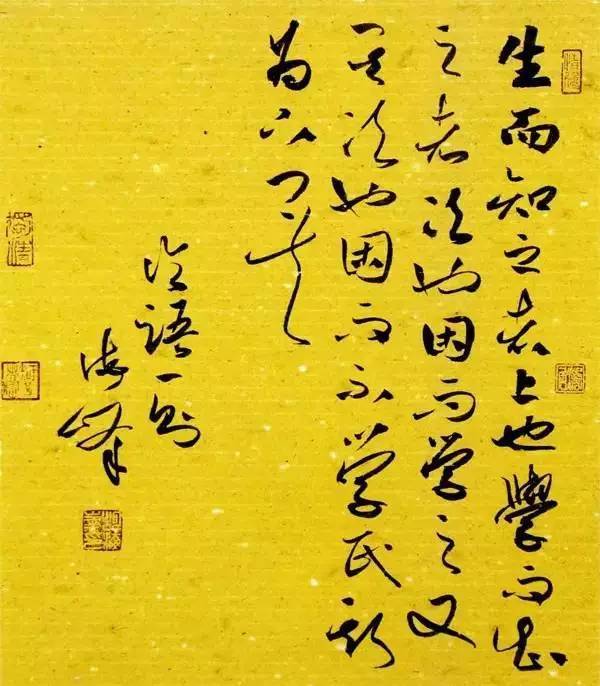 生而知之者上也學而知
之者次也困而学之又
其次也困而不学民斯
为下矣
论語一则
海峰